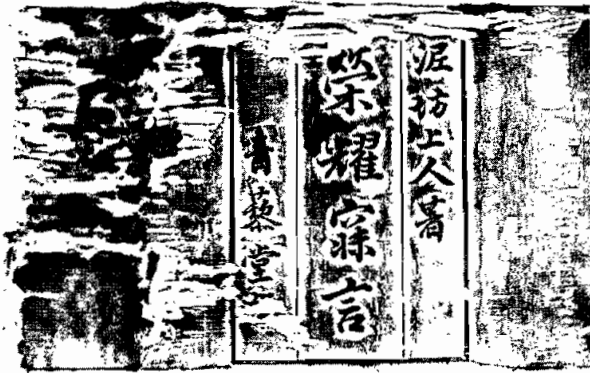 泥坊上人著
栄耀寐言
青藜堂